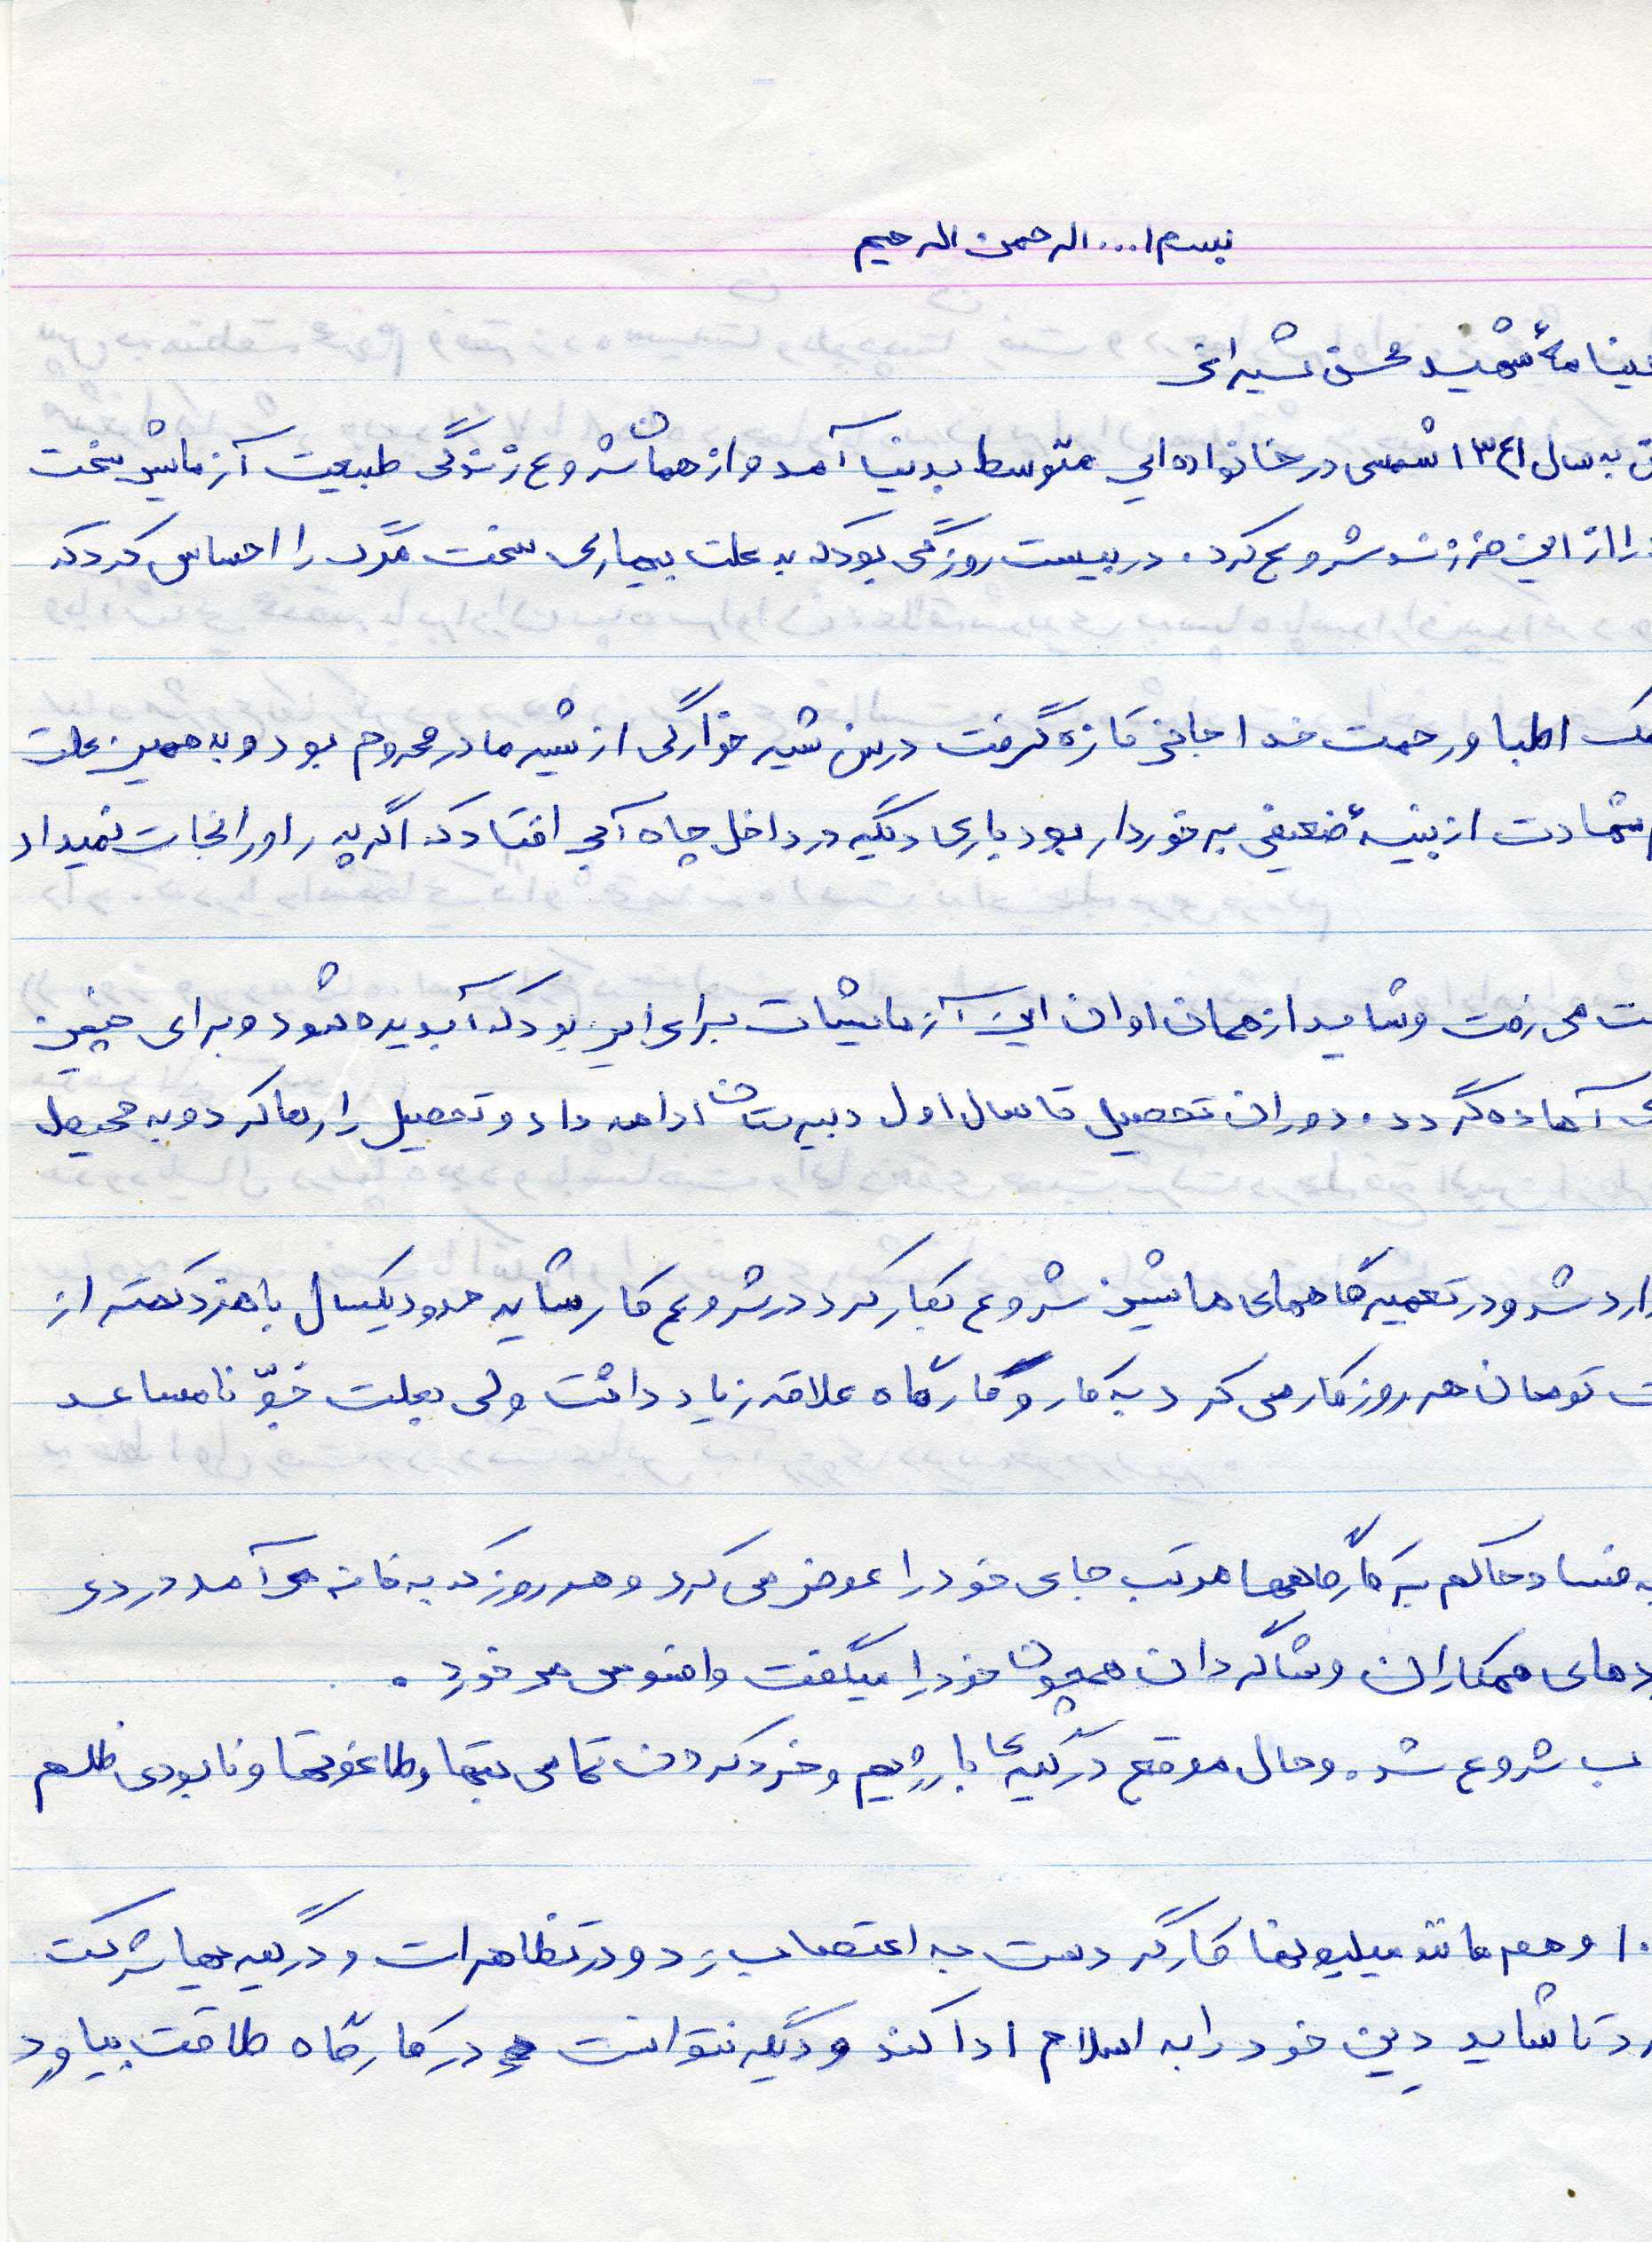 بسم ا... الرحمن الرحیم
شهید محسن شیرانی
به سال ۱۳۴۱ شمسی در خانواده ایی متوسط بدنیا آمد و از همان شروع زندگی طبیعت آزمایش سخت
را از این فرزند شروع کرد. در بیست روزگی بود که به علت بیماری سخت مرگ را احساس کرد که
اطبا و رحمت خدا جانی تازه گرفت درسن شیر خوارگی از شیر مادر محروم بود و به همین علت
شهادت از بنیهٔ ضعیفی برخوردار بود باری دیگر در داخل چاه آبی افتاد که اگر پدر او را نجات نمیداد
می رفت و شاید از همان اوان این آزمایشات برای این بود که آبدیده شود و برای چنین
آماده گردد. دوران تحصیل تا سال اول دبیرستان ادامه داد و تحصیل را رها کرد و به محیط
شد و در تعمیرگاههای ماشین شروع بکار کرد در شروع کار شاید حدود یکسال با مزد کمتر از
تومان هر روز کار می کرد به کار و کارگاه علاقه زیاد داشت ولی بعلت جوّ نامساعد
فساد حاکم بر کارگاهها مرتب جای خود را عوض می کرد و هر روز که به خانه می آمد درد دی
همکاران و شاگردان همچون خود را میگفت و افسوس می خورد.
شروع شد. و حال موقع درگیری با رژیم و خرد کردن تمامی بتها و طاغوتها و نابودی ظلم
و هم مانند میلیونها کارگر دست به اعتصاب زد و در تظاهرات و درگیریها شرکت
تا شاید دِین خود را به اسلام ادا کند و دیگر نتوانست در کارگاه طاقت بیاورد